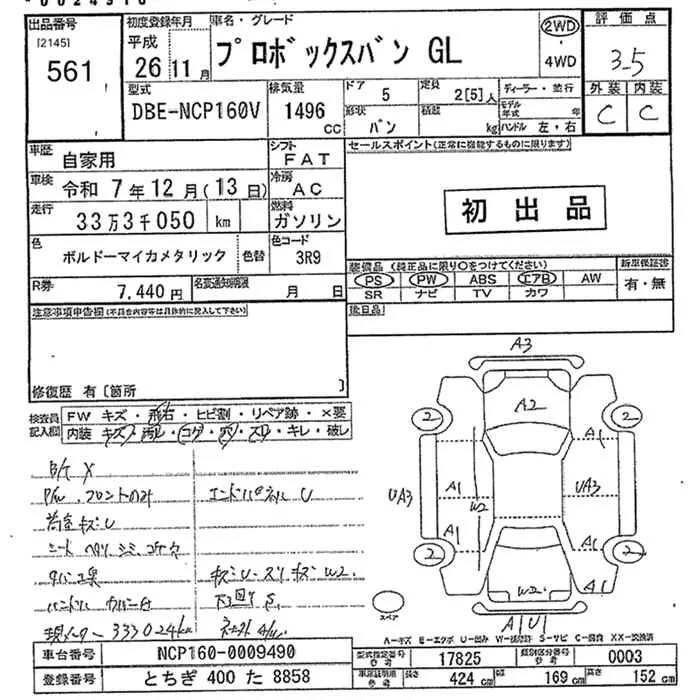 出品番号
[2145]
561
初度登録年月
平成
26 11月
車名・グレード
プロボックスバン GL
2WD
・
4WD
評価点
3.5
外装 内装
C C
型式
DBE-NCP160V
排気量
1496
CC
ドア
5
定員
2[5]人
形状
バン
積載
kg
ディーラー・並行
モデル年式 年
ハンドル 左・右
車歴
自家用
シフト
FAT
車検
令和 7年12月(13日)
冷房
AC
走行
33万3千050 km
燃料
ガソリン
色
ボルドーマイカメタリック
色替
色コード
3R9
R券
7,440円
名変通知期限
月 日
セールスポイント(正常に機能するものに限ります)
初出品
装備品(純正品に限り○をつけてください)
PS PW ABS エアB AW
SR ナビ TV カワ
新車保証書
有・無
後日品
注意事項申告欄(不具合内容等は具体的に記入して下さい)
修復歴 有〔箇所 〕
検査員
記入欄
FW キズ・飛石・ヒビ割・リペア跡・×要
内装 キズ・汚レ・コゲ・穴・スレ・キレ・破レ
B/C X
P/W フロントのみ
エンドパネル U
荷室キズU
シート ヘタリ シミ コゲ穴
キズU・スリキズ W2
下回り S
現メーター 333024km
A3
A2
2
2
A1
UA3
A1
W2
UA3
A1
A1
2
2
W2
A1
A1U1
スペア
A-キズ E-エクボ U-凹み W-補修跡 S-サビ C-腐食 XX-交換済
車台番号
NCP160-0009490
登録番号
とちぎ 400 た 8858
型式指定番号
参考
17825
類別区分番号
参考
0003
車原証明用
参考
長さ
424 cm
幅
169 cm
高さ
152 cm